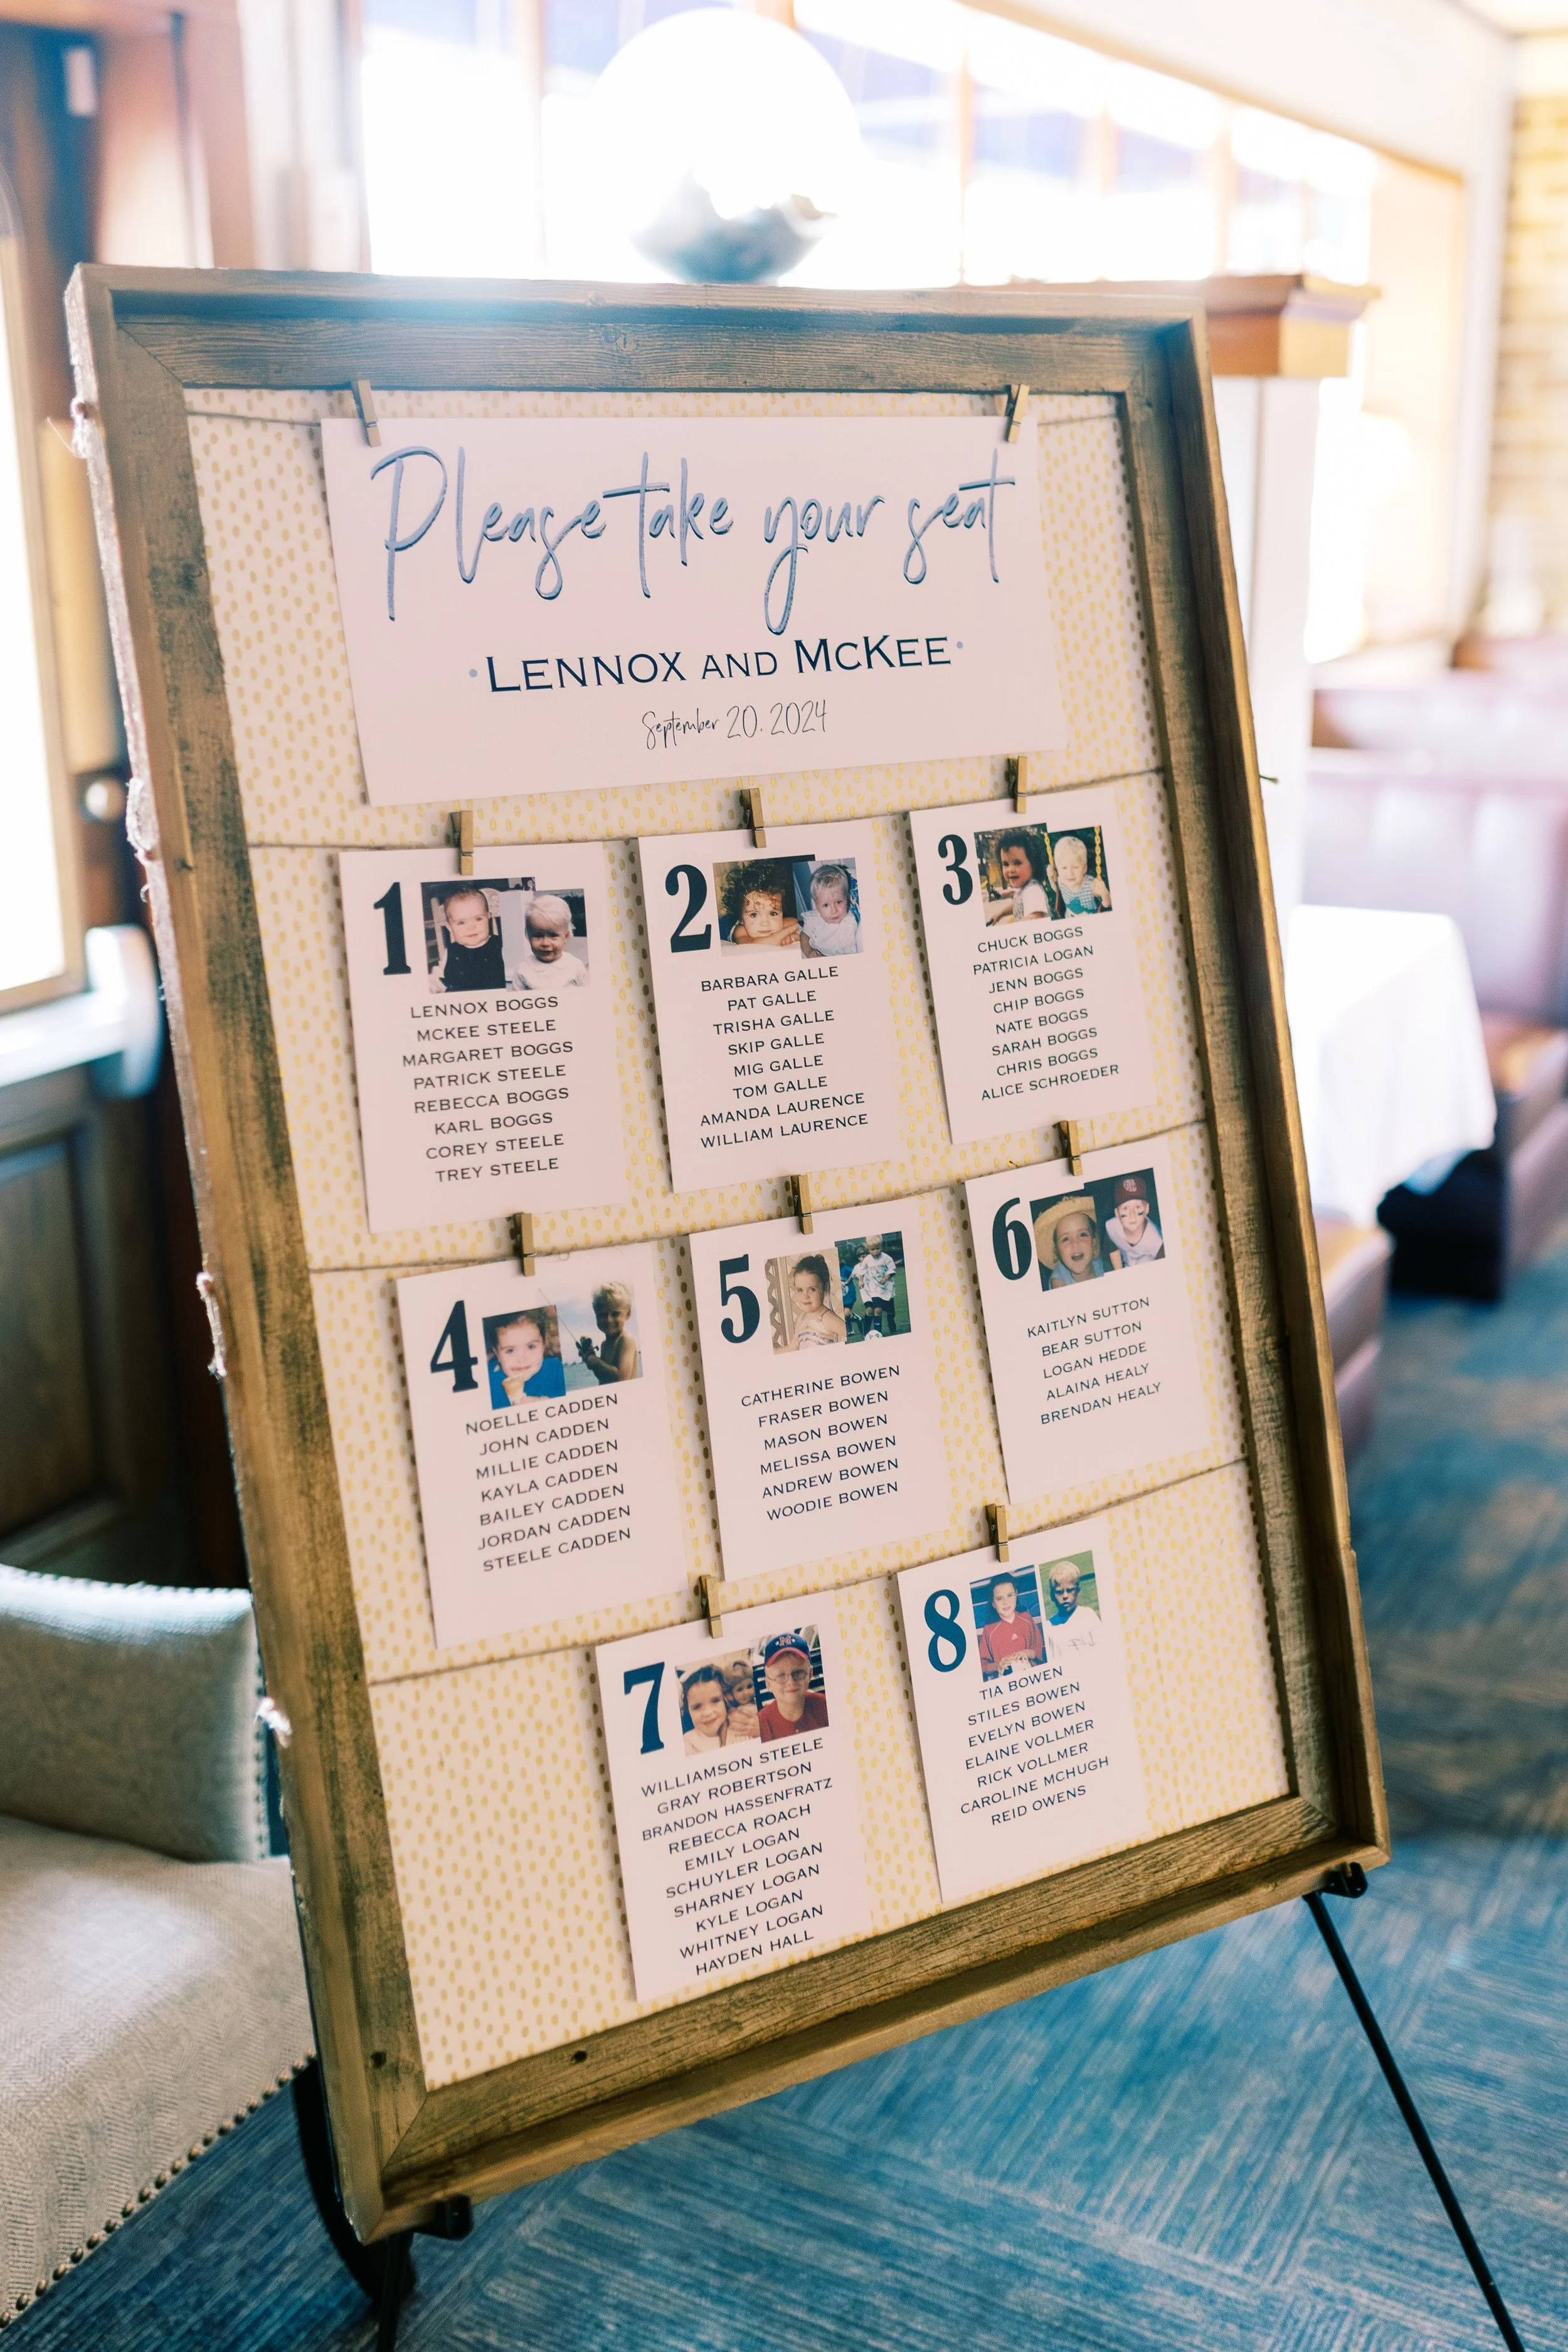 Please take your seat
·LENNOX AND MCKEE·
September 20, 2024
1
LENNOX BOGGS
MCKEE STEELE
MARGARET BOGGS
PATRICK STEELE
REBECCA BOGGS
KARL BOGGS
COREY STEELE
TREY STEELE
2
BARBARA GALLE
PAT GALLE
TRISHA GALLE
SKIP GALLE
MIG GALLE
TOM GALLE
AMANDA LAURENCE
WILLIAM LAURENCE
3
CHUCK BOGGS
PATRICIA LOGAN
JENN BOGGS
CHIP BOGGS
NATE BOGGS
SARAH BOGGS
CHRIS BOGGS
ALICE SCHROEDER
4
NOELLE CADDEN
JOHN CADDEN
MILLIE CADDEN
KAYLA CADDEN
BAILEY CADDEN
JORDAN CADDEN
STEELE CADDEN
5
CATHERINE BOWEN
FRASER BOWEN
MASON BOWEN
MELISSA BOWEN
ANDREW BOWEN
WOODIE BOWEN
6
KAITLYN SUTTON
BEAR SUTTON
LOGAN HEDDE
ALAINA HEALY
BRENDAN HEALY
7
WILLIAMSON STEELE
GRAY ROBERTSON
BRANDON HASSENFRATZ
REBECCA ROACH
EMILY LOGAN
SCHUYLER LOGAN
SHARNEY LOGAN
KYLE LOGAN
WHITNEY LOGAN
HAYDEN HALL
8
TIA BOWEN
STILES BOWEN
EVELYN BOWEN
ELAINE VOLLMER
RICK VOLLMER
CAROLINE MCHUGH
REID OWENS